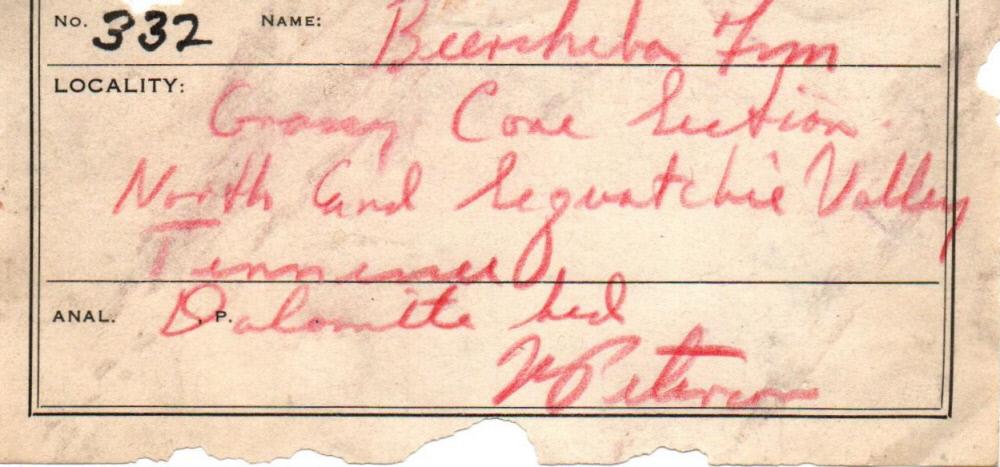 No. 332 NAME: Beersheba Fm
LOCALITY:
Grassy Cove Section
North End Sequatchie Valley
Tennessee
ANAL. P. Dolomite bed
Peterson